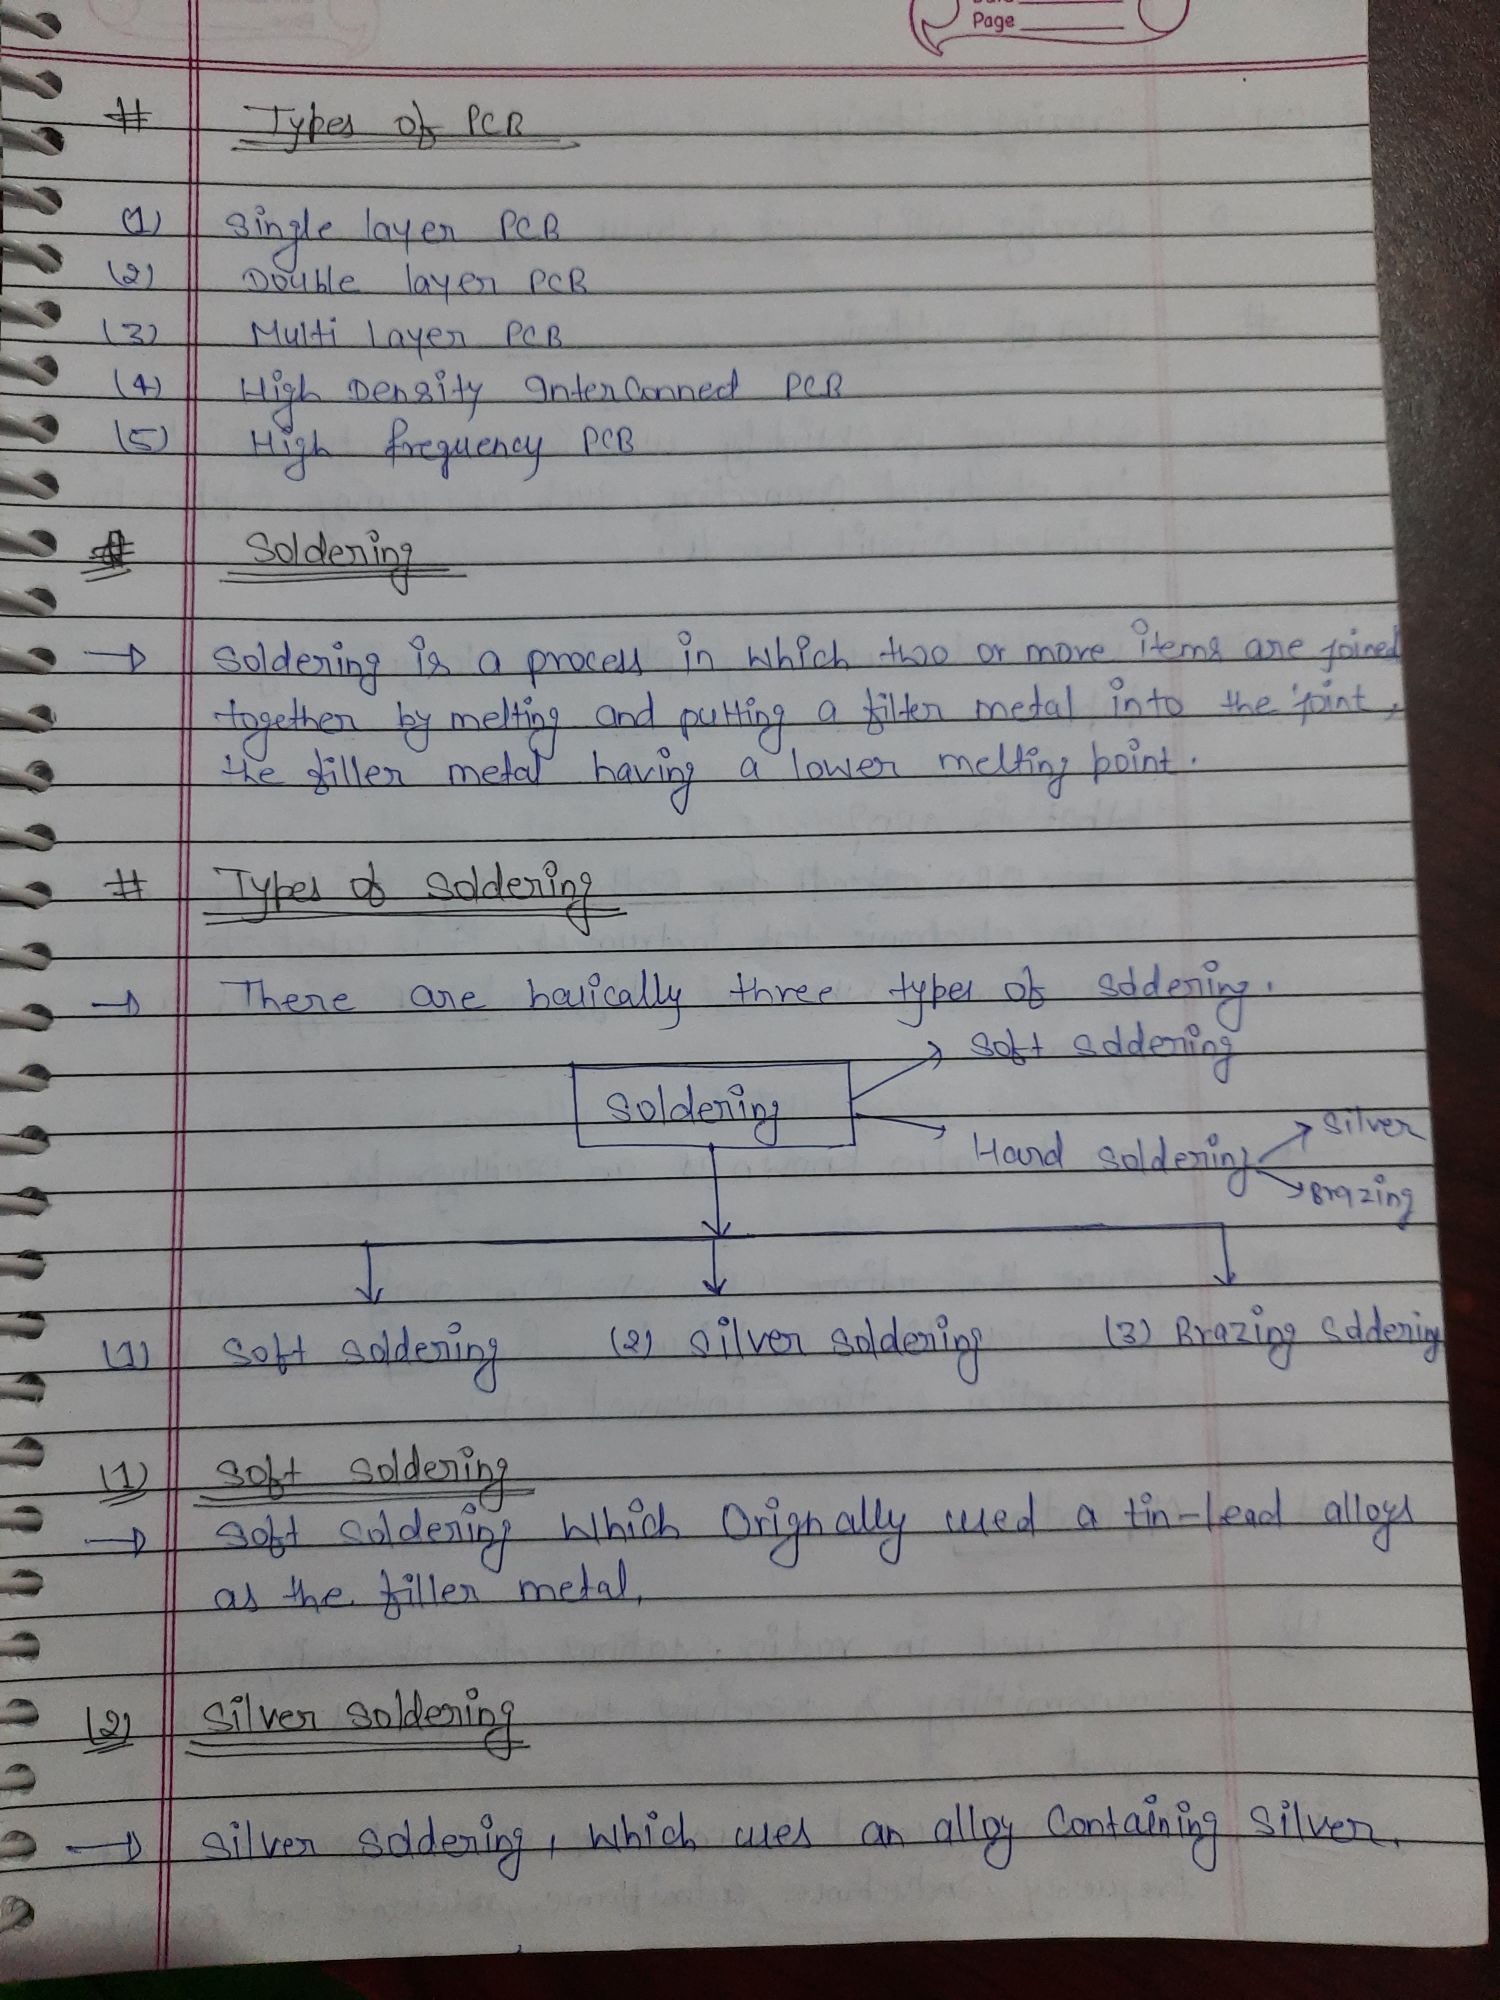 Page
# Types of PCB
(1) Single layer PCB
(2) Double layer PCB
(3) Multi Layer PCB
(4) High Density InterConnect PCB
(5) High frequency PCB
# Soldering
→ Soldering is a process in which two or more items are joined
together by melting and putting a filler metal into the joint,
the filler metal having a lower melting point.
# Types of Soldering
→ There are basically three types of soldering.
Soft soldering
Soldering
Hard soldering
Silver
Brazing
(1) Soft soldering (2) Silver soldering (3) Brazing Soldering
(1) Soft soldering
→ Soft soldering which Orignally used a tin-lead alloys
as the filler metal,
(2) Silver soldering
→ Silver soldering, which uses an alloy Containing Silver.